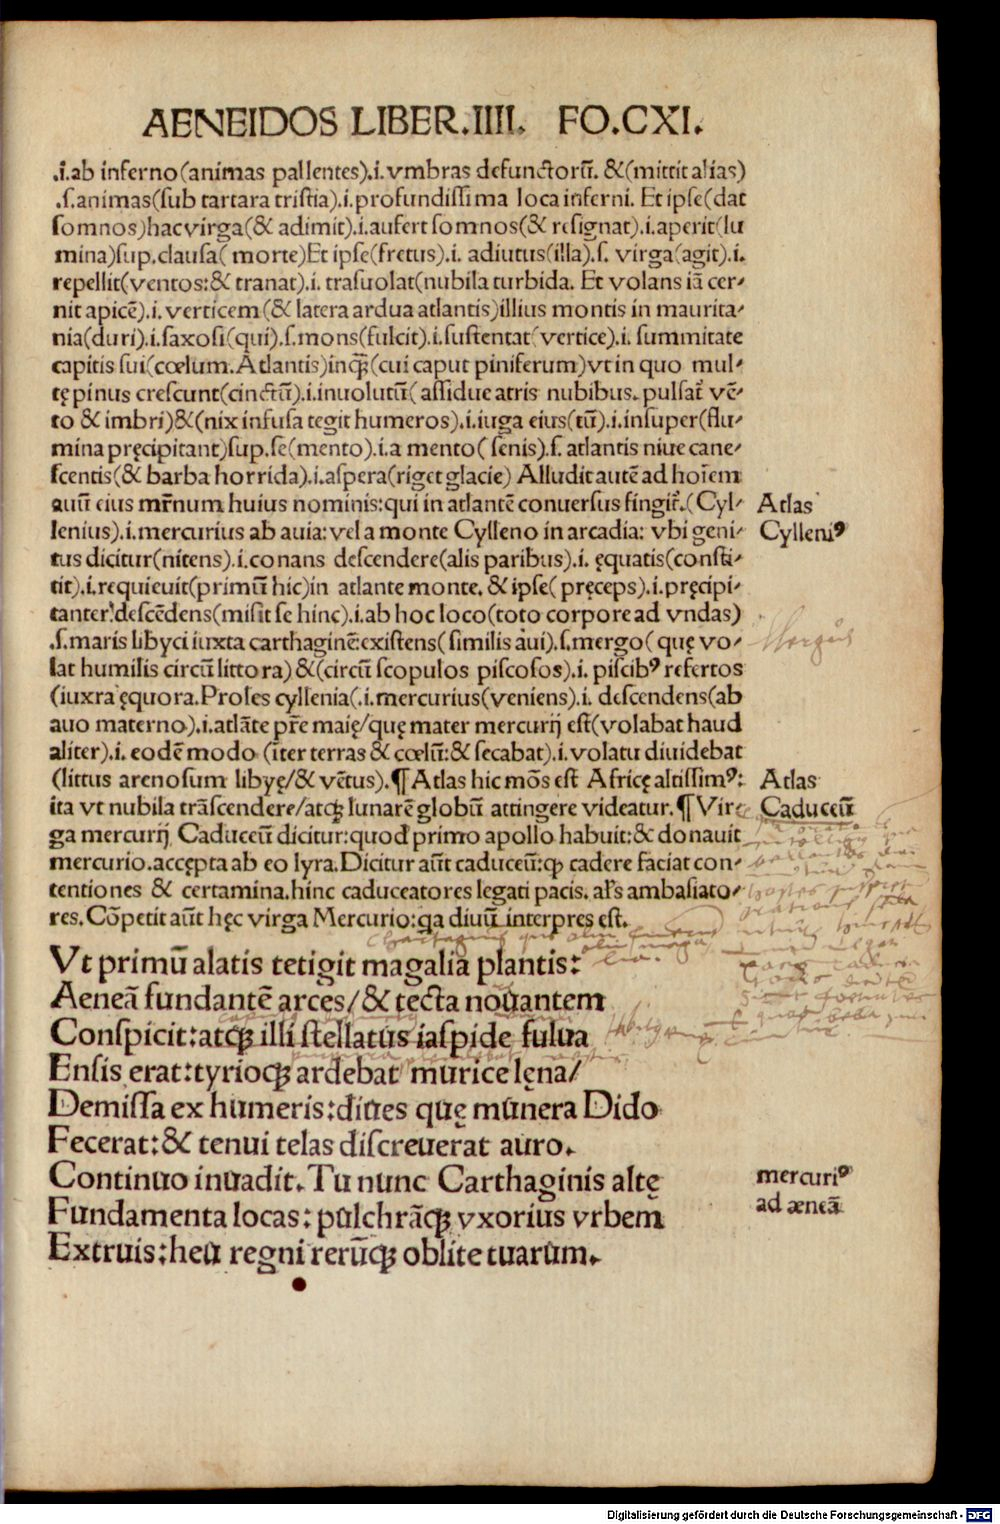 AENEIDOS LIBER.IIII. FO.CXI.
.i.ab inferno(animas pallentes).i.vmbras defunctorū. &(mittit alias)
.ſ.animas(ſub tartara triſtia).i.profundiſſima loca inferni. Et ipſe(dat
ſomnos)hac virga(& adimit).i.aufert ſomnos(& reſignat).i.aperit(lu
mina)ſup.clauſa( morte)Et ipſe(fretus).i. adiutus(illa).ſ. virga(agit).i.
repellit(ventos:& tranat).i. trāſuolat(nubila turbida. Et volans iā cer⸗
nit apicē).i.verticem(& latera ardua atlantis)illius montis in maurita⸗
nia(duri).i.ſaxoſi(qui).ſ.mons(fulcit).i.ſuſtentat(vertice).i. ſummitate
capitis ſui(cœlum.Atlantis)inq̄(cui caput piniferum)vt in quo mul⸗
tę pinus creſcunt(cinctū).i.inuolutū( aſſidue atris nubibus.pulſat̄ vē⸗
to & imbri)&(nix infuſa tegit humeros).i.iuga eius(tū).i.inſuper(flu⸗
mina pręcipitant)ſup.ſe(mento).i.a mento( ſenis).ſ. atlantis niue cane⸗
ſcentis(& barba horrida).i.aſpera(riget glacie) Alludit autē ad hoīem
auū eius mr̄num huius nominis:qui in atlantē conuerſus fingit̄.(Cyl⸗
lenius).i.mercurius ab auia:vel a monte Cylleno in arcadia: vbi geni⸗
tus dicitur(nitens).i.conans deſcendere(alis paribus).i. ęquatis(conſti⸗
tit).i.requieuit(primū hic)in atlante monte. & ipſe( pręceps).i.pręcipi⸗
tanter deſcēdens(miſit ſe hinc).i.ab hoc loco(toto corpore ad vndas)
.ſ.maris libyci iuxta carthaginē exiſtens( ſimilis aui).ſ.mergo( quę vo⸗
lat humilis circū littora)&(circū ſcopulos piſcoſos).i. piſcibꝰ refertos
(iuxta ęquora.Proles cyllenia(.i.mercurius(veniens).i. deſcendens(ab
auo materno).i.atlāte pr̄e maię/quę mater mercurij eſt(volabat haud
aliter).i. eodē modo (īter terras & cœlū:& ſecabat).i.volatu diuidebat
(littus arenoſum libyę/& vētus).¶Atlas hic mōs eſt Africę altiſſimꝰ:
ita vt nubila trāſcendere/atqꝫ lunarē globū attingere videatur.¶Vir⸗
ga mercurij Caduceū dicitur:quod primo apollo habuit:& donauit
mercurio.accępta ab eo lyra.Dicitur aūt caduceū:ꝙ cadere faciat con⸗
tentiones & certamina.hinc caduceatores legati pacis. als̄ ambaſiato⸗
res.Cōpetit aūt hęc virga Mercurio:qa diuū interpres eſt.
Atlas
Cylleniꝰ
Mergus
Atlas
Caduceū
Vt primū alatis tetigit magalia plantis:
Aeneā fundantē arces/& tecta nouantem
Conſpicit:atqꝫ illi ſtellatus iaſpide fulua
Enſis erat:tyrioqꝫ ardebat murice lęna/
Demiſſa ex humeris:diues quę munera Dido
Fecerat:& tenui telas diſcreuerat auro.
Continuo inuadit. Tu nunc Carthaginis altę
Fundamenta locas: pulchrāqꝫ vxorius vrbem
Extruis:heu regni rerūqꝫ oblite tuarum.
mercuriꝰ
ad æneā
Digitalisierung gefördert durch die Deutsche Forschungsgemeinschaft - DFG